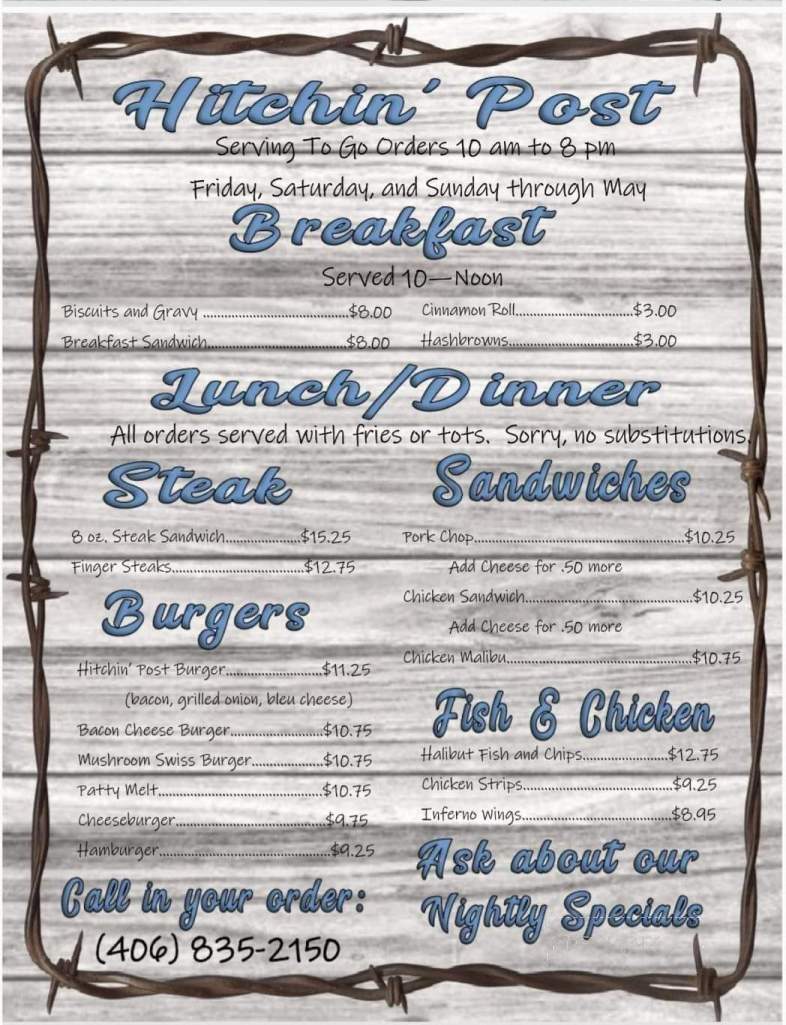 Hitchin' Post
Serving To Go Orders 10 am to 8 pm
Friday, Saturday, and Sunday through May
Breakfast
Served 10—Noon
Biscuits and Gravy ....................................$8.00
Breakfast Sandwich....................................$8.00
Cinnamon Roll..............................$3.00
Hashbrowns...............................$3.00
Lunch/Dinner
All orders served with fries or tots. Sorry, no substitutions.
Steak
8 oz. Steak Sandwich...................$15.25
Finger Steaks.................................$12.75
Burgers
Hitchin' Post Burger........................$11.25
(bacon, grilled onion, bleu cheese)
Bacon Cheese Burger.......................$10.75
Mushroom Swiss Burger..................$10.75
Patty Melt.........................................$10.75
Cheeseburger.....................................$9.75
Hamburger...........................................$9.25
Call in your order:
(406) 835-2150
Sandwiches
Pork Chop.....................................................$10.25
Add Cheese for .50 more
Chicken Sandwich..........................................$10.25
Add Cheese for .50 more
Chicken Malibu..............................................$10.75
Fish & Chicken
Halibut Fish and Chips.....................$12.75
Chicken Strips.....................................$9.25
Inferno Wings.....................................$8.95
Ask about our
Nightly Specials